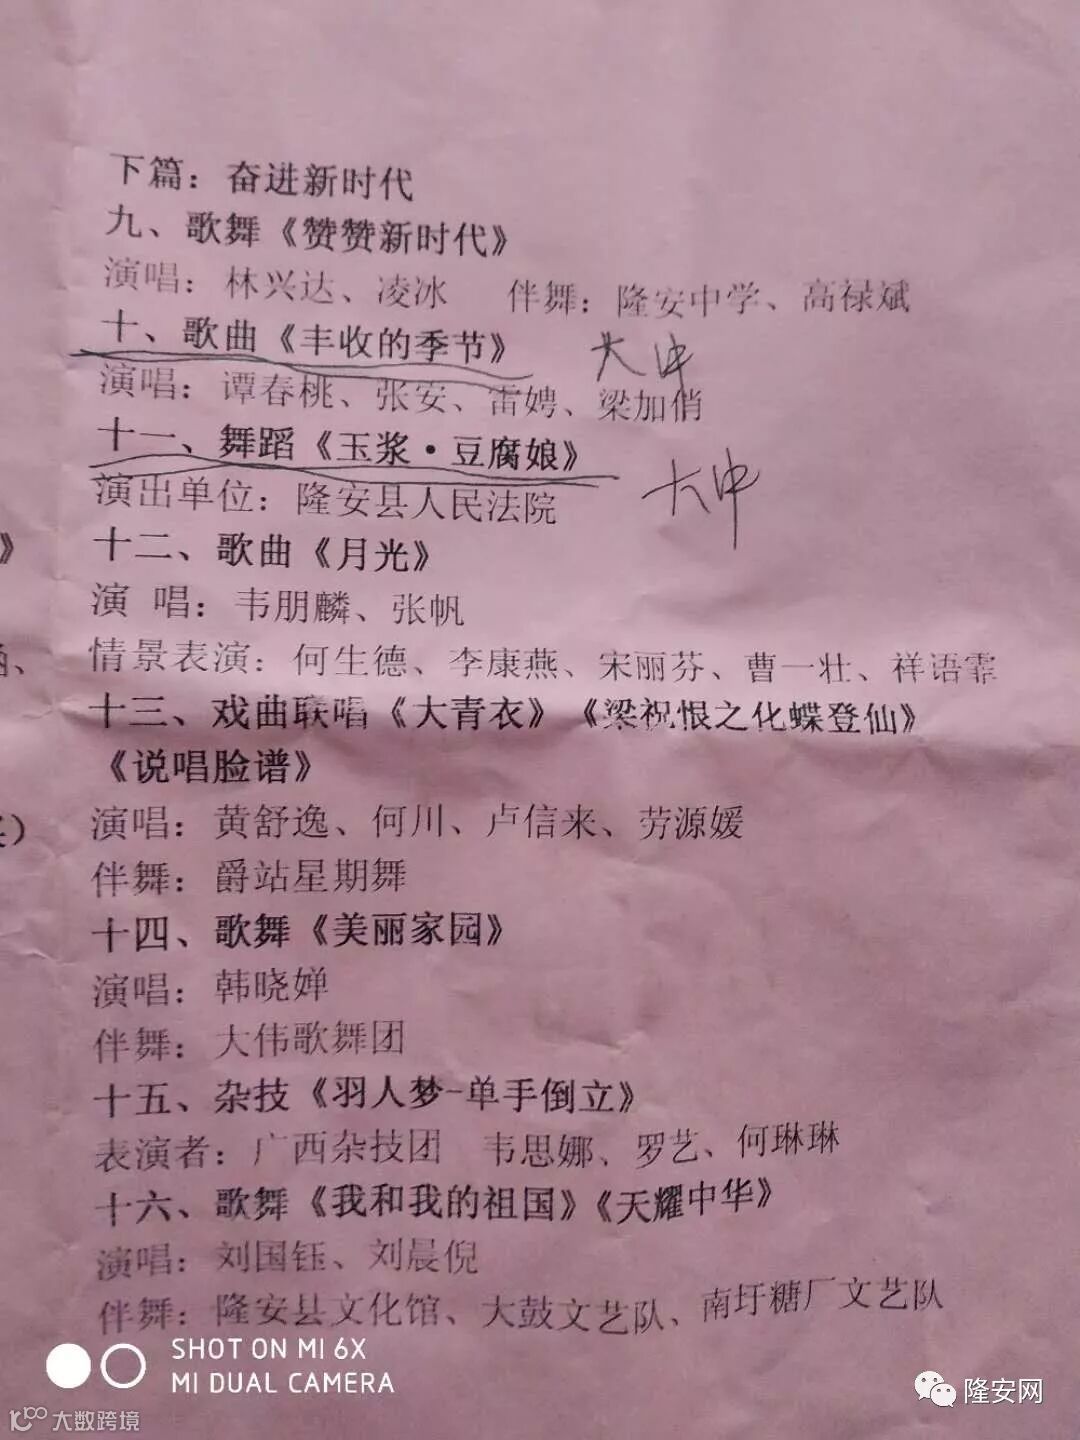 下篇：奋进新时代
九、歌舞《赞赞新时代》
演唱：林兴达、凌冰 伴舞：隆安中学、高禄斌
十、歌曲《丰收的季节》 大中
演唱：谭春桃、张安、雷娉、梁加俏
十一、舞蹈《玉浆·豆腐娘》 大中
演出单位：隆安县人民法院
》 十二、歌曲《月光》
演 唱：韦朋麟、张帆
、 情景表演：何生德、李康燕、宋丽芬、曹一壮、祥语霏
十三、戏曲联唱《大青衣》《梁祝恨之化蝶登仙》
《说唱脸谱》
） 演唱：黄舒逸、何川、卢信来、劳源媛
伴舞：爵站星期舞
十四、歌舞《美丽家园》
演唱：韩晓婵
伴舞：大伟歌舞团
十五、杂技《羽人梦-单手倒立》
表演者：广西杂技团 韦思娜、罗艺、何琳琳
十六、歌舞《我和我的祖国》《天耀中华》
演唱：刘国钰、刘晨倪
伴舞：隆安县文化馆、大鼓文艺队、南圩糖厂文艺队
SHOT ON MI 6X
MI DUAL CAMERA
隆安网
大数跨境